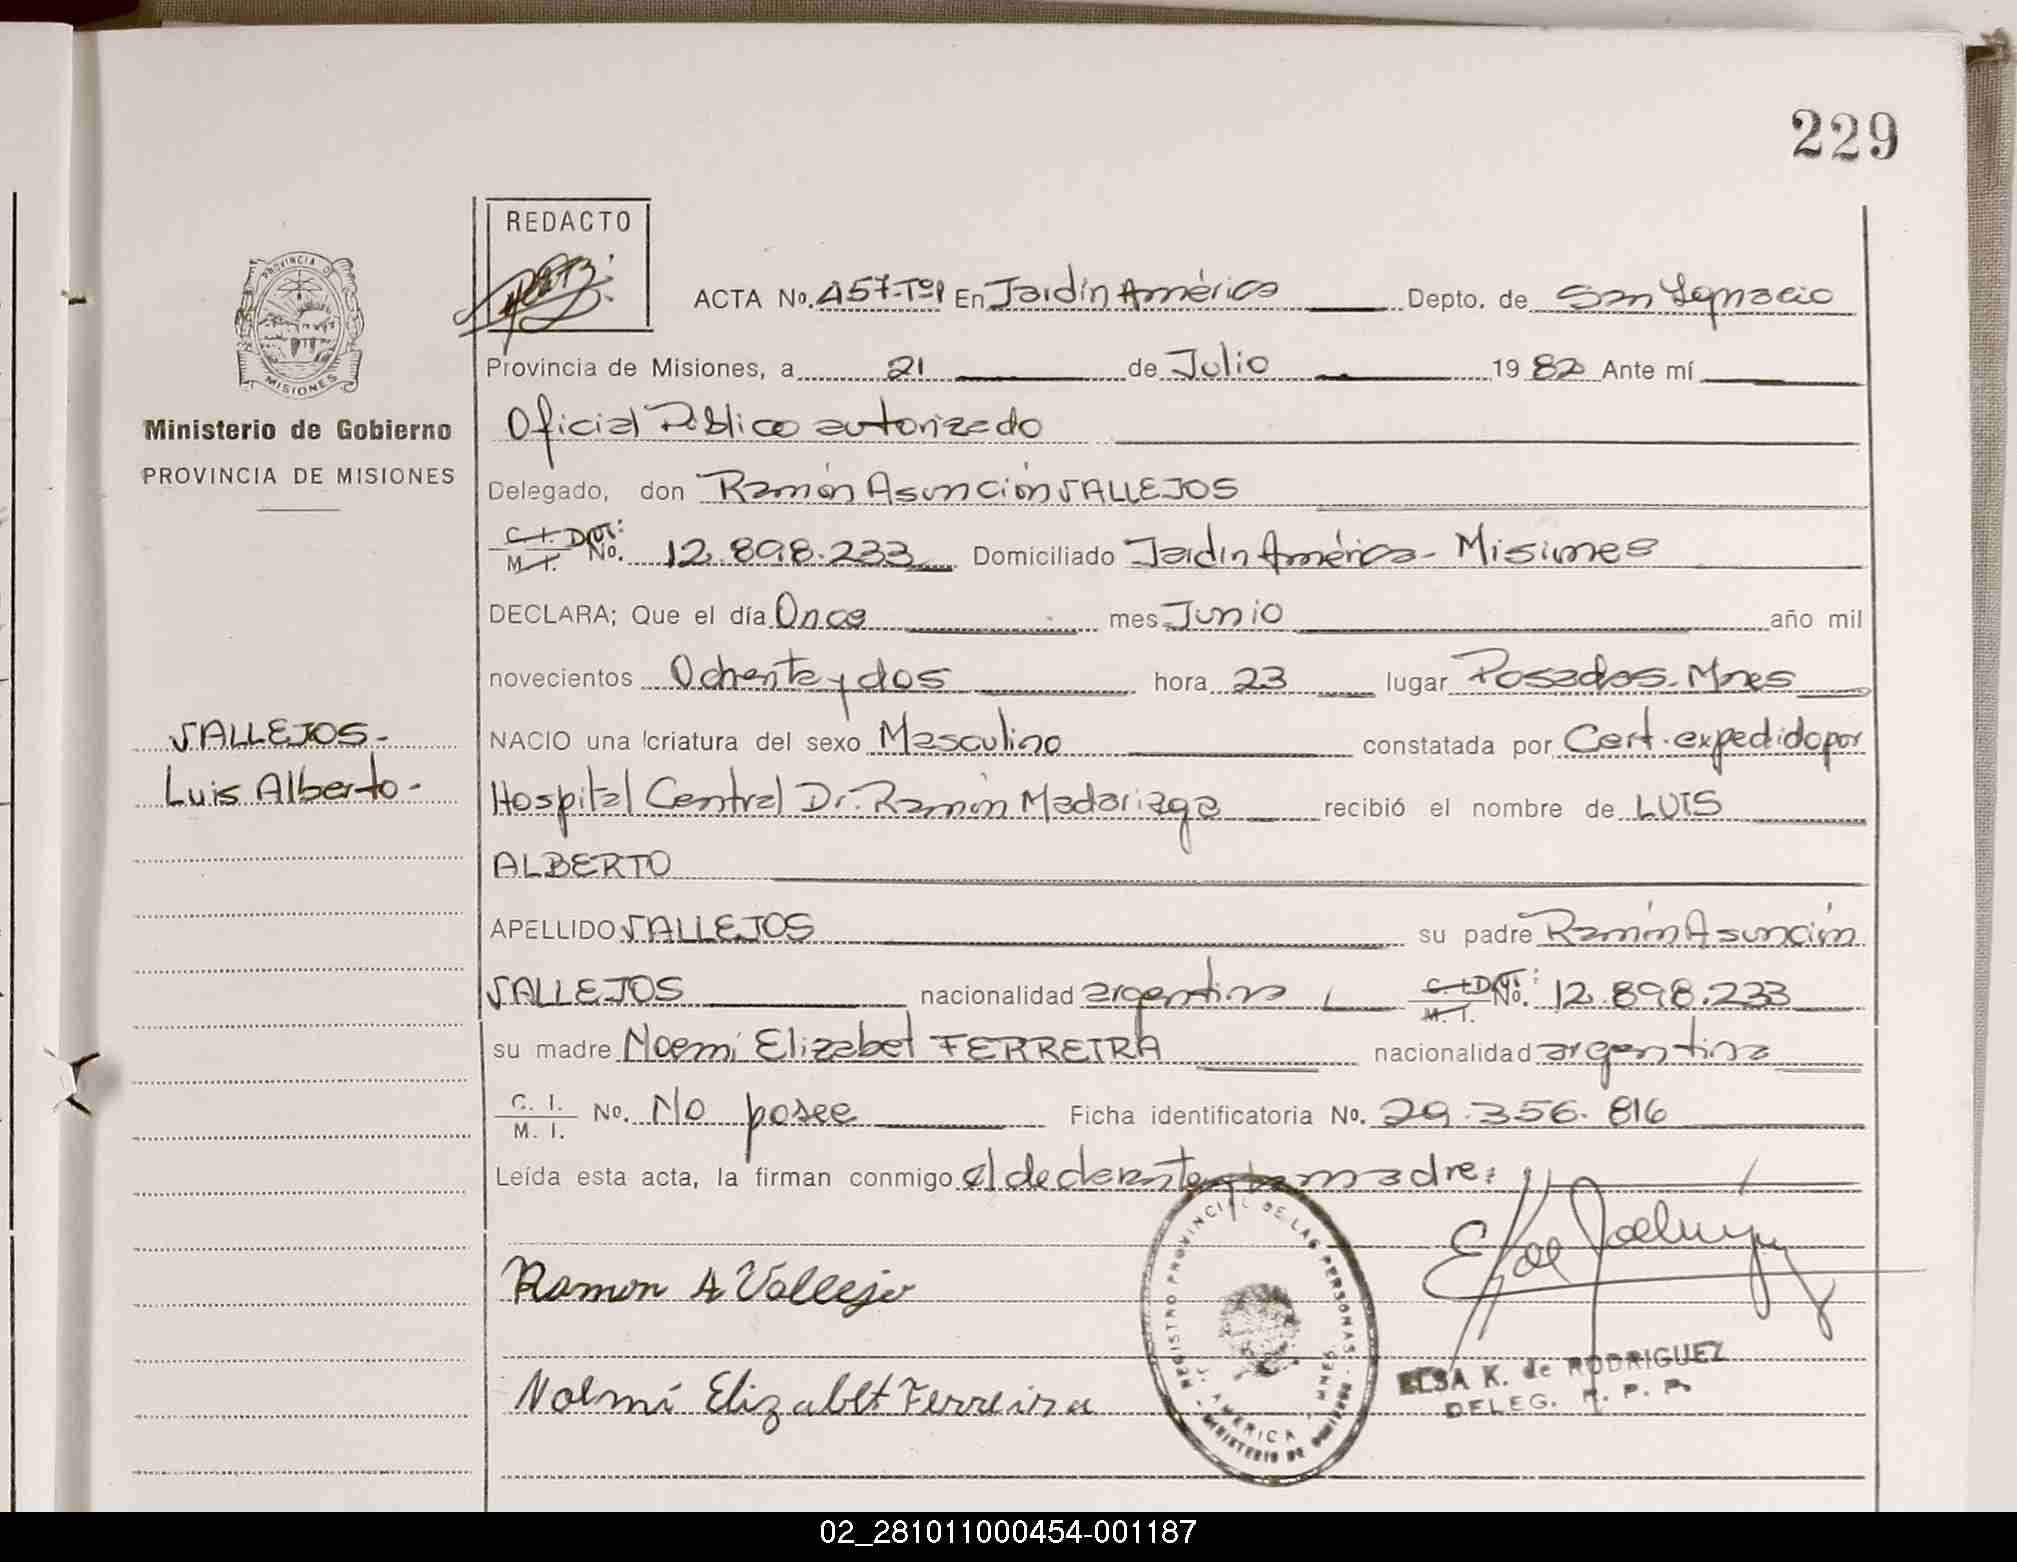 229
REDACTO
PROVINCIA D
MISIONES
Ministerio de Gobierno
PROVINCIA DE MISIONES
ACTA No. 457-Tº1 En Jardín América Depto. de San Ignacio
Provincia de Misiones, a 21 de Julio 1982 Ante mí
Oficial Público autorizado
Delegado, don Ramón Asunción VALLEJOS
C. I. DNI: M. I. No. 12.898.233 Domiciliado Jardín América - Misiones
DECLARA; Que el día Once mes Junio año mil
novecientos Ochenta y dos hora 23 lugar Posadas. Mnes
VALLEJOS-
Luis Alberto-
NACIO una criatura del sexo Masculino constatada por Cert. expedido por
Hospital Central Dr. Ramón Madariaga recibió el nombre de LUIS
ALBERTO
APELLIDO VALLEJOS su padre Ramón Asunción
VALLEJOS nacionalidad argentina C. I. DNI: M. I. No. 12.898.233
su madre Noemí Elizabet FERREIRA nacionalidad argentina
C. I. M. I. No. No posee Ficha identificatoria No. 29.356.816
Leída esta acta, la firman conmigo el declarante y la madre:
Ramon A Vallejo
Noemí Elizabet Ferreira
REGISTRO PROVINCIAL DE LAS PERSONAS
J. AMERICA - MNES
MINISTERIO DE GOBIERNO
ELSA K. de RODRIGUEZ
DELEG. R. P. P.
02_281011000454-001187